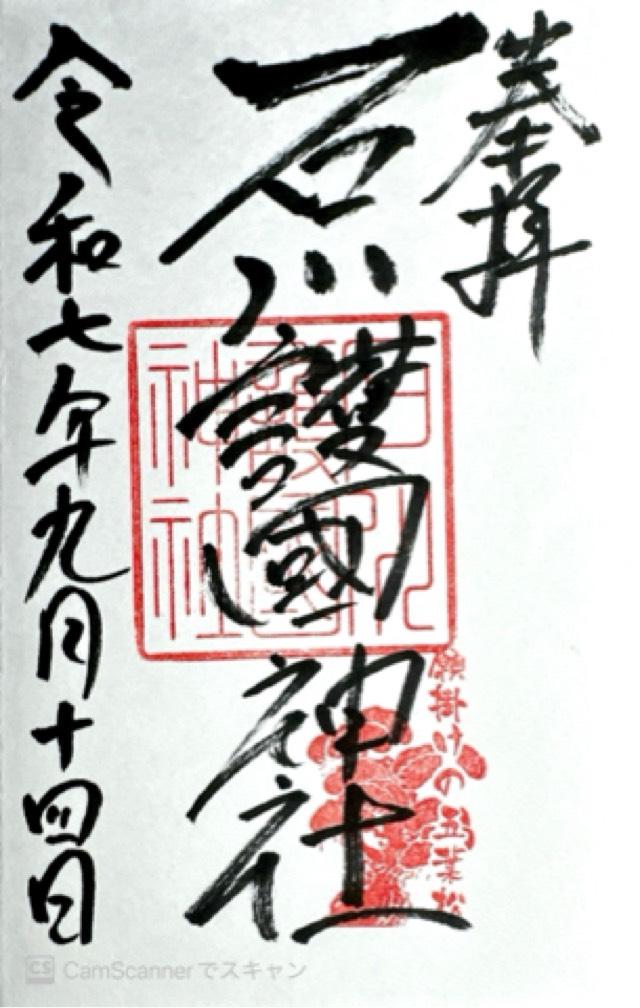 奉拝
石川護國神社
石川護國神社
願掛けの五葉松
令和七年九月十四日
CS CamScannerでスキャン